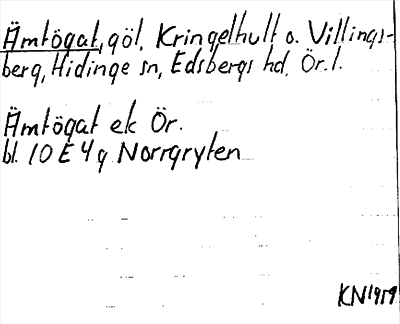 Ämtögat, göl, Kringelhult o. Villings-
berg, Hidinge sn, Edsbergs hd, Ör. l.
Ämtögat ek Ör.
bl. 10 E 4 g Norrgryten
KN 1959